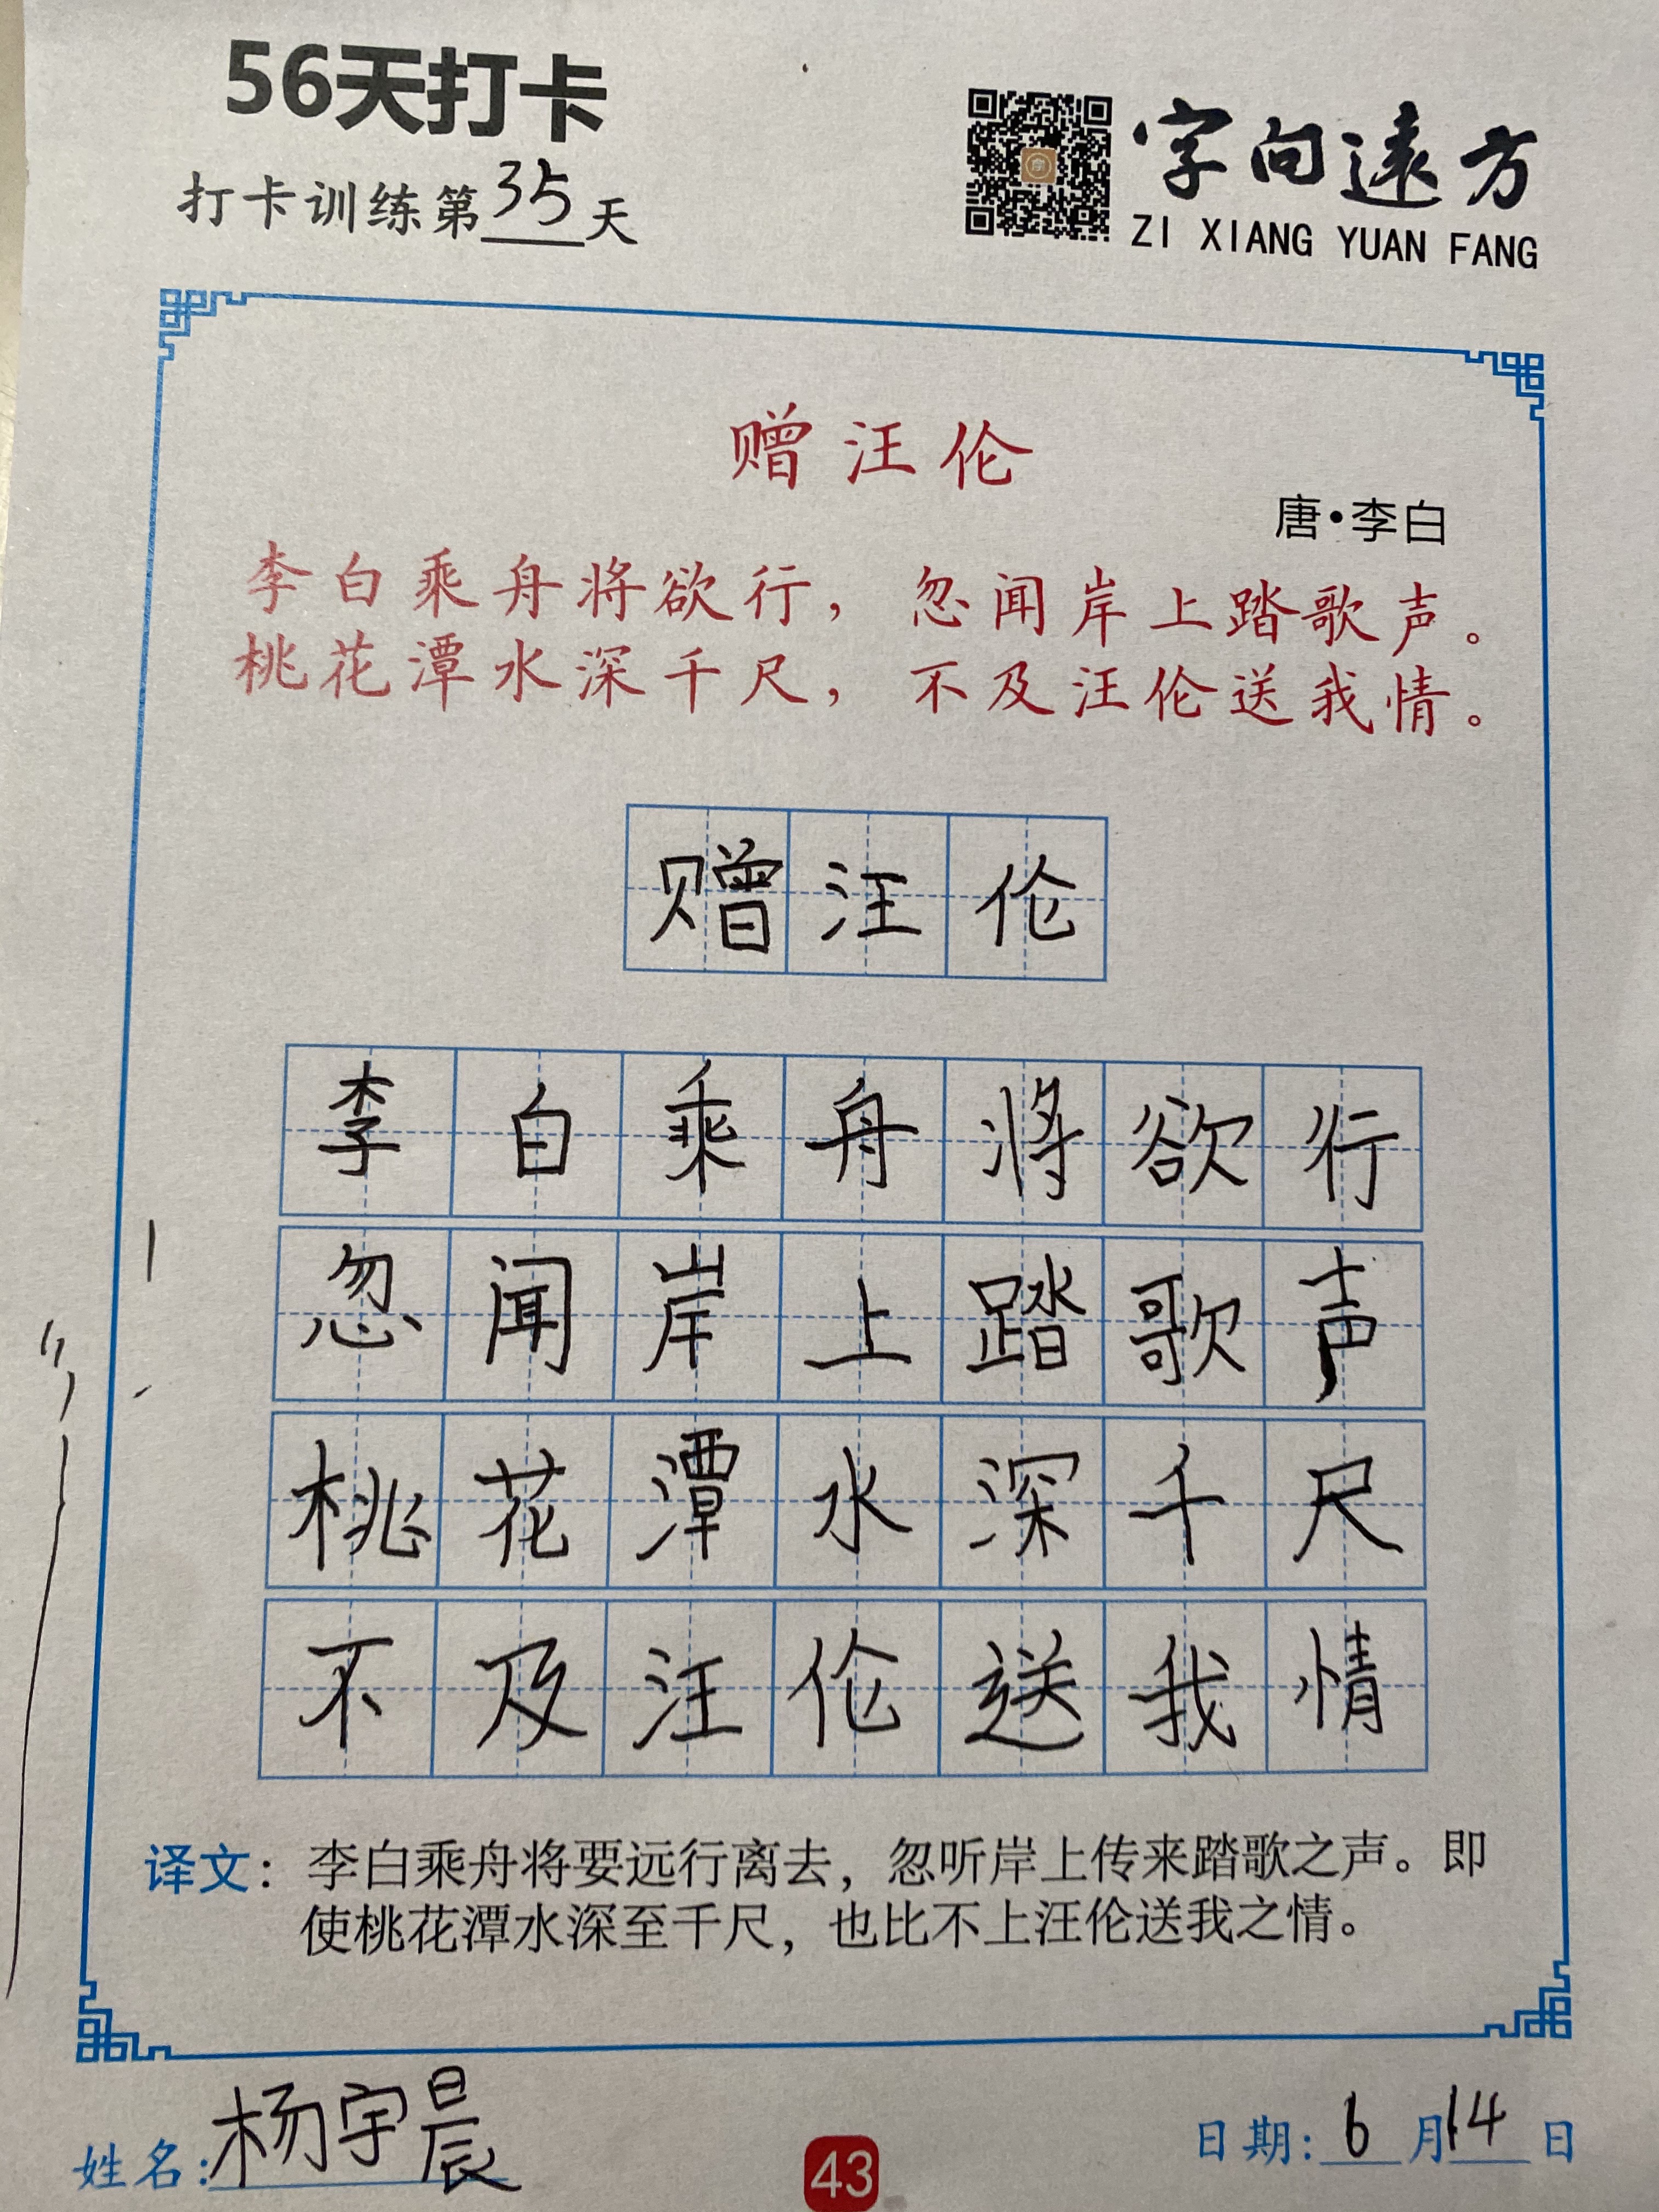 56天打卡
打卡训练第35天
字向遠方
ZI XIANG YUAN FANG
赠汪伦
唐·李白
李白乘舟将欲行，忽闻岸上踏歌声。
桃花潭水深千尺，不及汪伦送我情。
赠汪伦
李白乘舟将欲行
忽闻岸上踏歌声
桃花潭水深千尺
不及汪伦送我情
译文：李白乘舟将要远行离去，忽听岸上传来踏歌之声。即
使桃花潭水深至千尺，也比不上汪伦送我之情。
姓名：杨宇晨
43
日期：6月14日